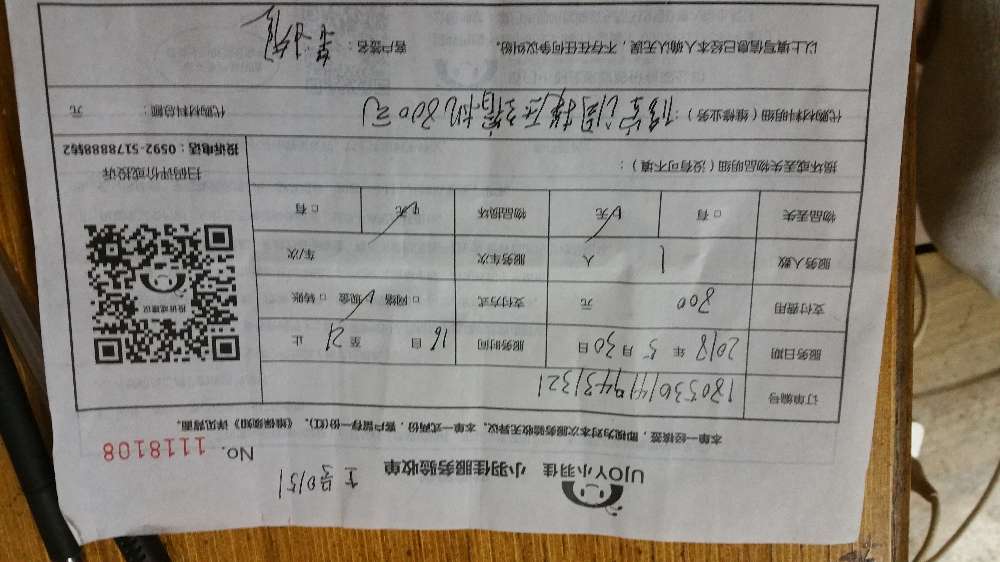 UJOY小羽佳 小羽佳服务验收单
No. 1118108
本单一经核签，即视为对本次服务验收无异议。本单一式两份，客户留存一份(红)。《维保须知》详见背面。
订单编号
服务日期 2018 年 5 月 30 日 服务时间 16 自 至 21 止
支付费用 800 元 支付方式 □ 网络 现金 □ 转账
服务人数 1 人 服务车次 车次
物品丢失 □ 有 无 物品损坏 无 □ 有
投诉或建议
扫码评价或投诉
投诉电话：0592-5178888转2
损坏或丢失物品明细（没有可不填）：
代购材料明细（维修业务）：修空调换压缩机800元
代购材料总额： 元
以上填写信息已经本人确认无误，不存在任何争议纠纷。 客户签名：